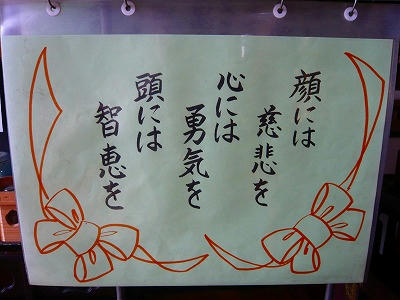 顔には
慈悲を
心には
勇気を
頭には
智恵を